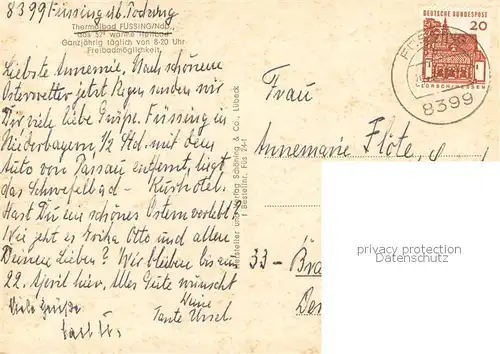 8399 Füssing üb. Pocking
Thermalbad FÜSSING/Ndb.,
das 52° warme Heilbad
Ganzjährig täglich von 8-20 Uhr
Freibademöglichkeit.
Liebste Annemie, Nach schönem
Osterwetter jetzt Regen senden wir
Dir viele liebe Grüße. Füssing in
Niederbayern, 1/2 Std. mit dem
Auto von Passau entfernt, liegt
das Schwefelbad - Kurhotel.
Hast Du ein schönes Ostern verlebt?
Wie geht es Otto und allen
Deinen Lieben? Wir bleiben bis zum
22. April hier. Alles Gute wünscht
Deine
Tante Ursel.
Viele Grüße
Hersteller und Verlag Schöning & Co., Lübeck
Bestellnr. Füs
DEUTSCHE BUNDESPOST
20
LORSCH/HESSEN
8399
Frau
Annemarie Flöte,
33 - Bra
privacy protection
Datenschutz